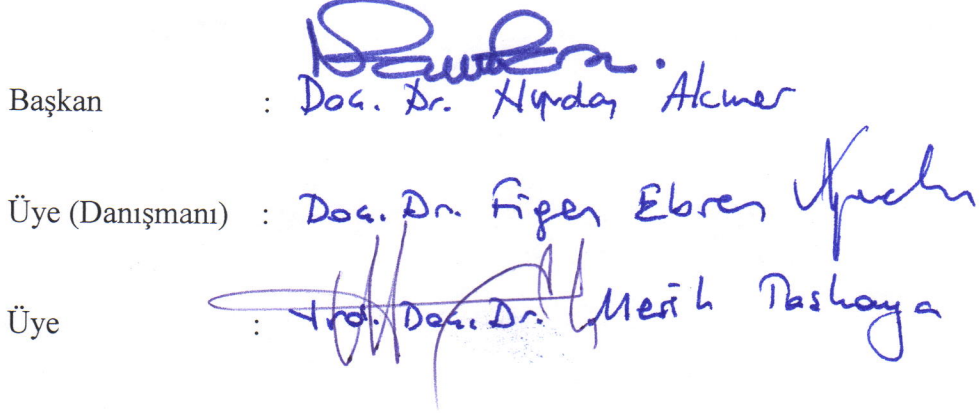 Başkan : Doç. Dr. Nurdan Akıner
Üye (Danışmanı) : Doç. Dr. Figen Ebren
Üye : Yrd. Doç. Dr. Merih Taşkaya